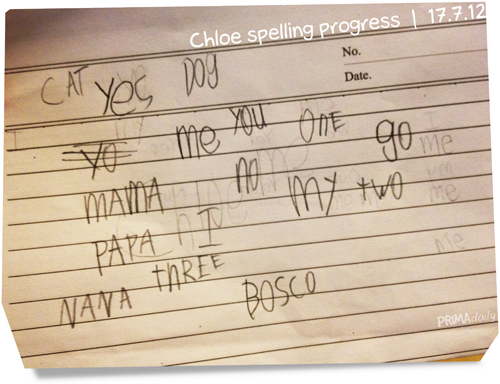 Chloe spelling progress | 17.7.12
No.
Date.
CAT yes DOY
yo me YOU ONE go
MAMA no MY two
PAPA I
THREE
NANA BOSCO
me
me
me
PRIMAdaily